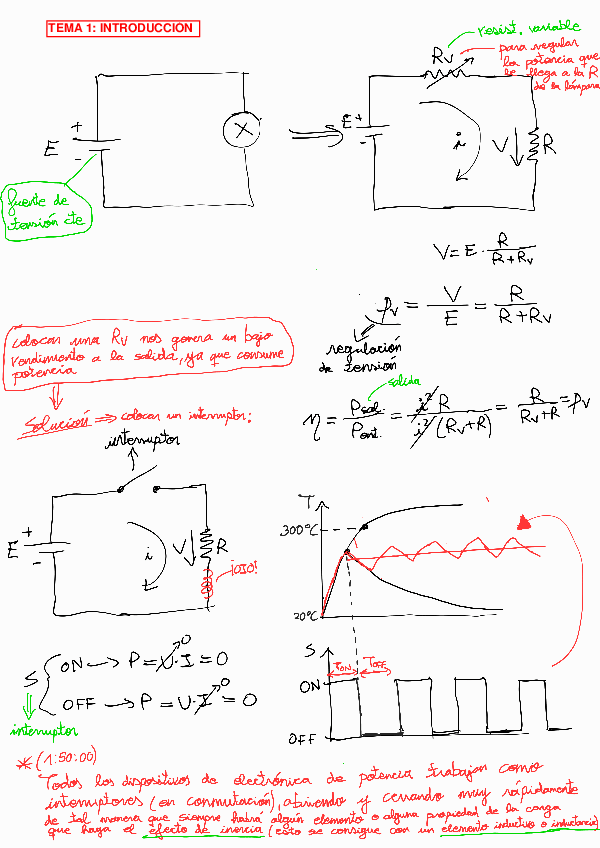 TEMA 1: INTRODUCCION
resist. variable
para regular
la potencia que
le llega a la R
de la lámpara
Rv
E
+
-
E +
-
i
V
R
fuente de
tensión cte
V = E · R / (R + Rv)
ρv = V / E = R / (R + Rv)
regulación
de tensión
colocar una Rv nos genera un bajo
rendimiento a la salida, ya que consume
potencia
salida
η = Psal. / Pent. = i² R / i² (Rv + R) = R / (Rv + R) = ρv
Solución ⇒ colocar un interruptor:
interruptor
E
+
-
i
V
R
¡OJO!
T
300°C
20°C
S
TON
TOFF
ON
OFF
S
ON → P = U · I = 0
0
OFF → P = U · I = 0
0
interruptor
* (1:50:00)
Todos los dispositivos de electrónica de potencia trabajan como
interruptores (en conmutación), abriendo y cerrando muy rápidamente
de tal manera que siempre habrá algún elemento o alguna propiedad de la carga
que haga el efecto de inercia (esto se consigue con un elemento inductivo o inductancia)